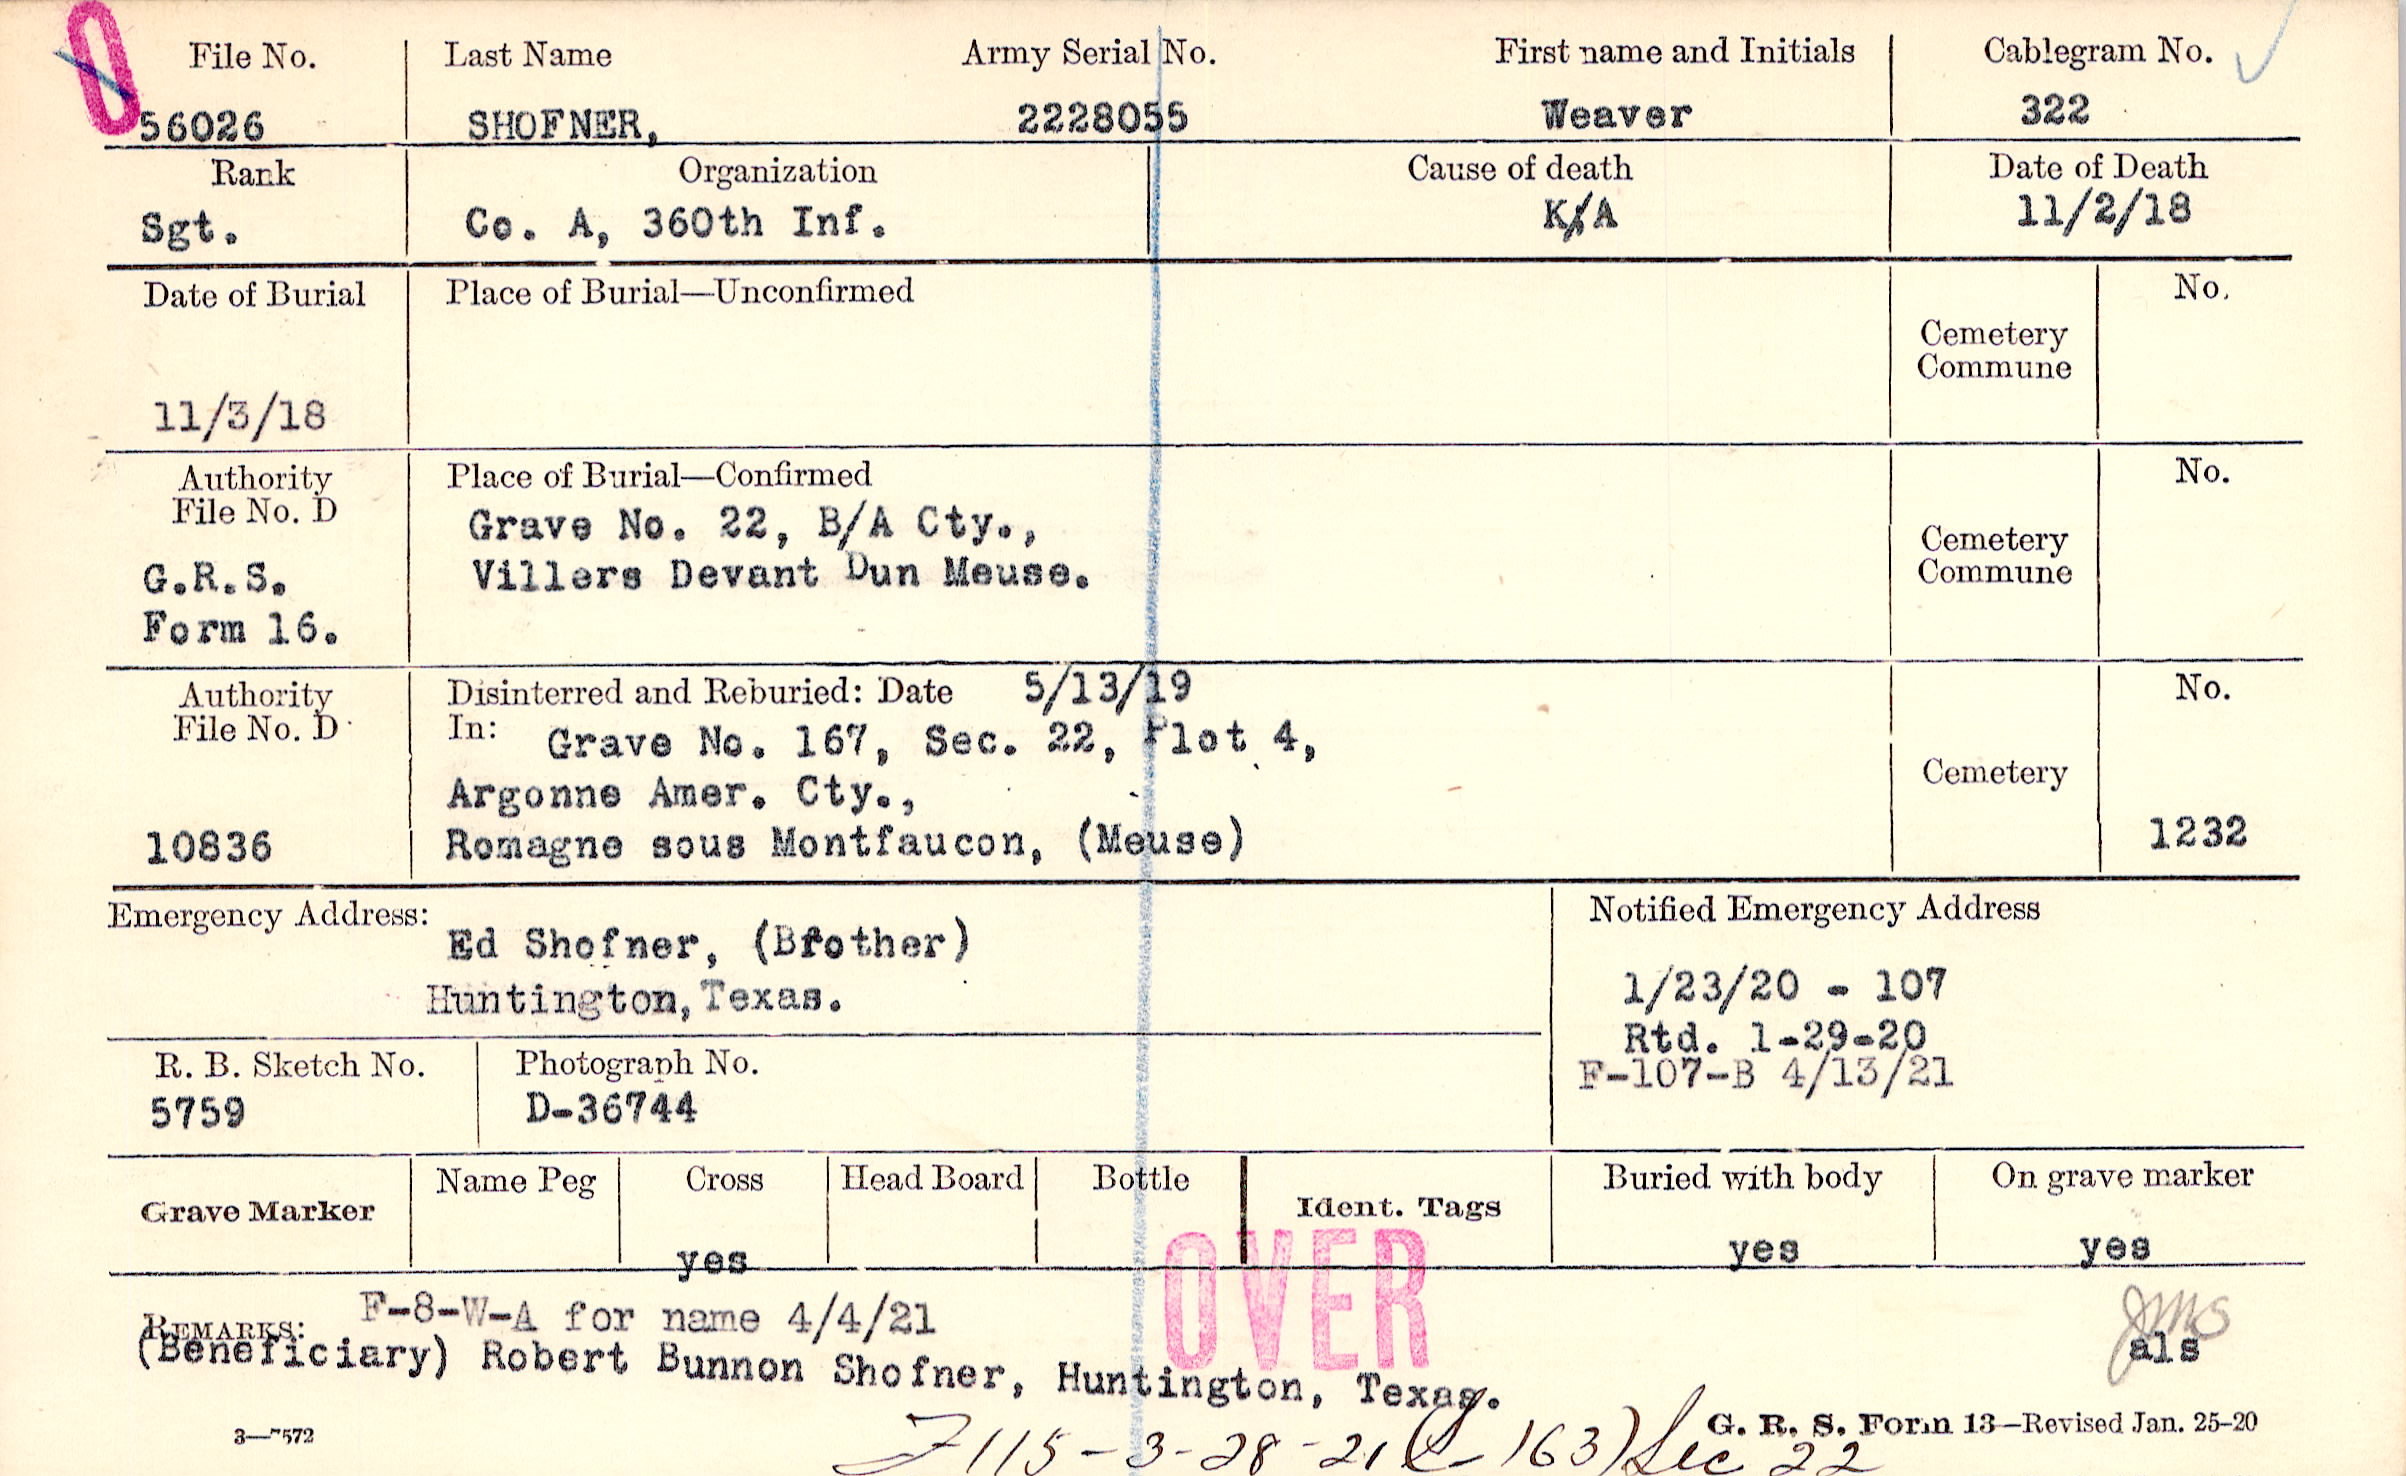 O
File No. Last Name Army Serial No. First name and Initials Cablegram No.
56026 SHOFNER, 2228055 Weaver 322
Rank Organization Cause of death Date of Death
Sgt. Co. A, 360th Inf. K/A 11/2/18
Date of Burial Place of Burial—Unconfirmed No.
Cemetery
Commune
11/3/18
Authority Place of Burial—Confirmed No.
File No. D Grave No. 22, B/A Cty.,
Cemetery
G.R.S. Villers Devant Dun Meuse. Commune
Form 16.
Authority Disinterred and Reburied: Date 5/13/19 No.
File No. D In: Grave No. 167, Sec. 22, Plot 4,
Argonne Amer. Cty., Cemetery
10836 Romagne sous Montfaucon, (Meuse) 1232
Emergency Address: Notified Emergency Address
Ed Shofner, (Brother)
Huntington, Texas. 1/23/20 - 107
Rtd. 1-29-20
R. B. Sketch No. Photograph No. F-107-B 4/13/21
5759 D-36744
Grave Marker Name Peg Cross Head Board Bottle Ident. Tags Buried with body On grave marker
yes yes yes
OVER
REMARKS: F-8-W-A for name 4/4/21 JMS
(Beneficiary) Robert Bunnon Shofner, Huntington, Texas. als
3—7572 G. R. S. Form 13—Revised Jan. 25-20
115-3-28-21 163) Sec 22